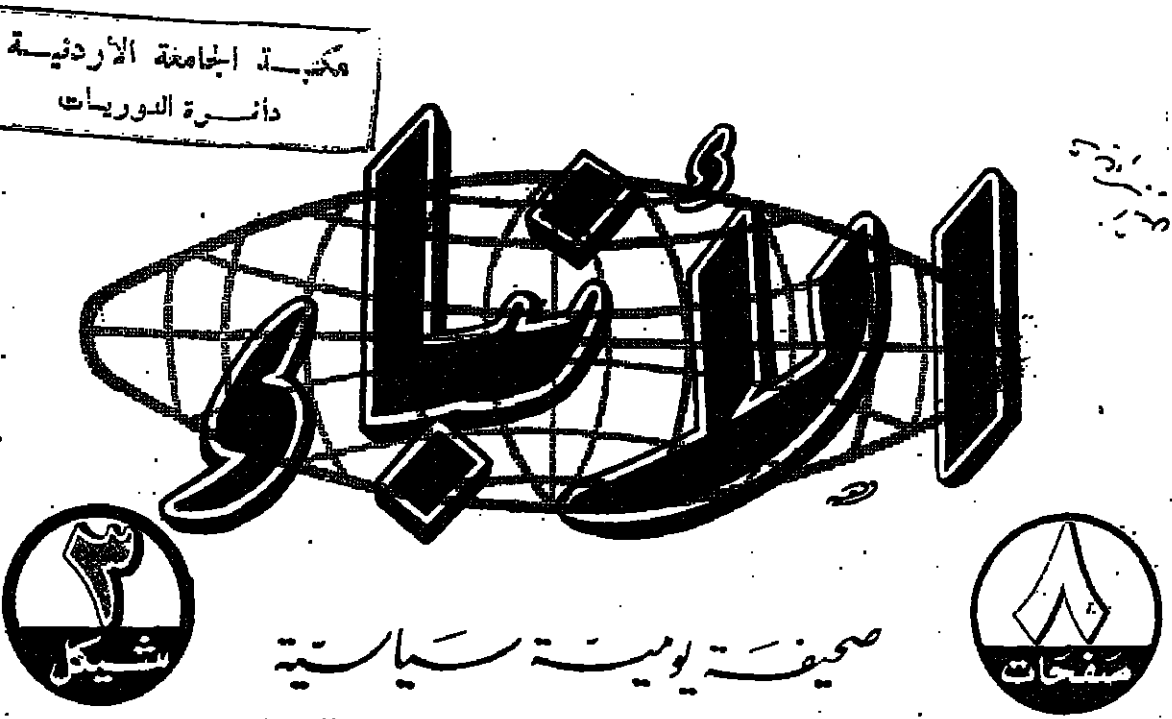 مكتبـــة الجامعة الأردنيـــة
دائـــرة الدوريات
الأنباء
٨
صفحات
صحيفَة يوميّة سيَاسيّة
٣
شيكل